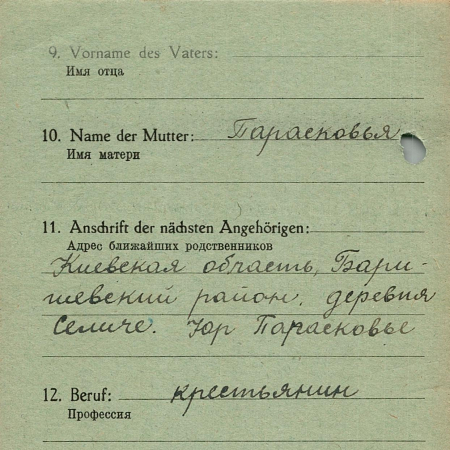 9. Vorname des Vaters:
Имя отца
10. Name der Mutter: Парасковья
Имя матери
11. Anschrift der nächsten Angehörigen:
Адрес ближайших родственников
Киевская область, Бари-
шевский район, деревня
Селиче. Юр Парасковье
12. Beruf: крестьянин
Профессия